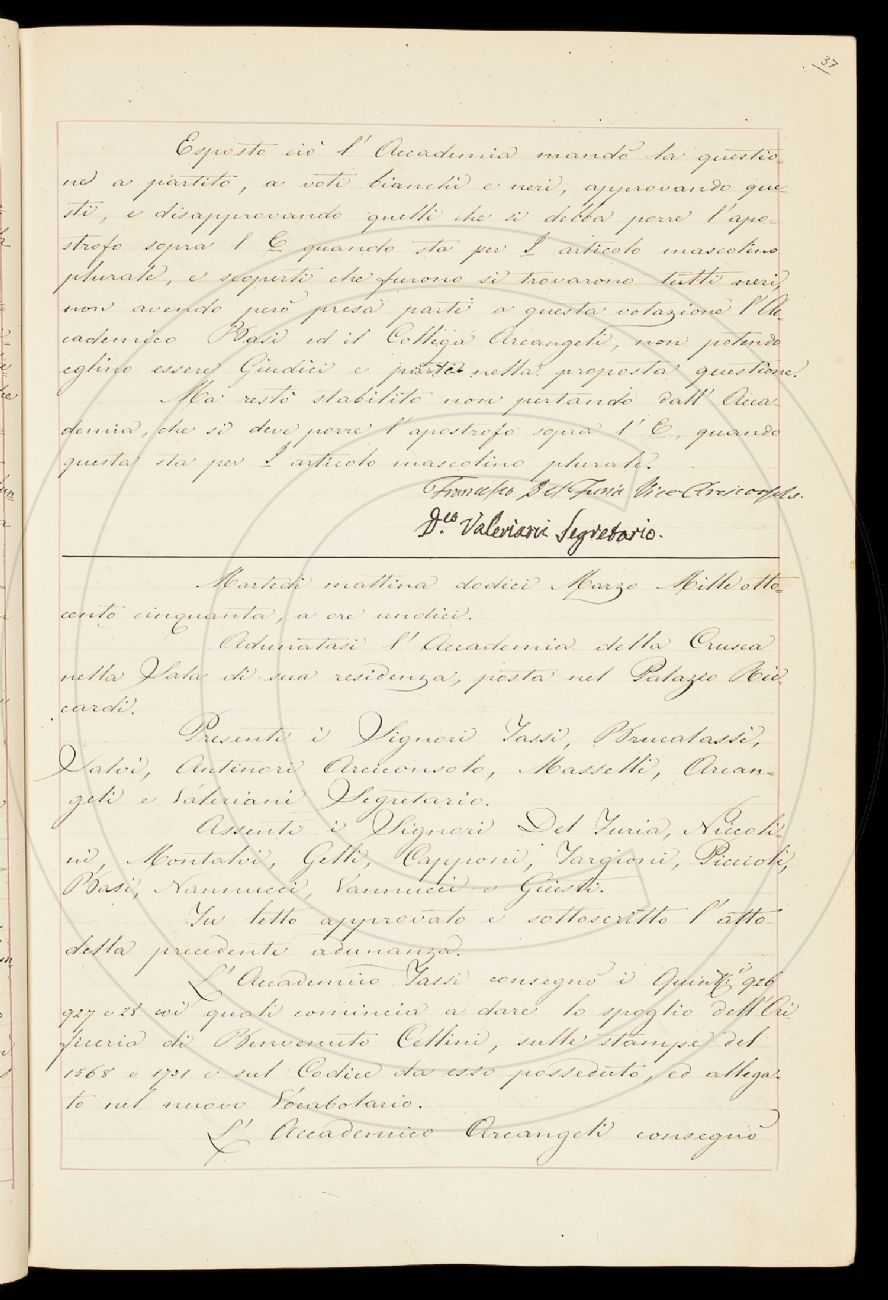 37
Esposto ciò l' Accademia mandò la questio-
ne a partito, a voti bianchi e neri, approvando que-
sti, e disapprovando quelli che si debba porre l'apo-
strofo sopra l E quando sta per I articolo mascolino
plurale, e scoperti che furono si trovarono tutti neri,
non avendo però presa parti a questa votazione l'Ac
cademico Basi ed il Collega Arcangeli, non potendo
eglino essere Giudici e parte nella proposta questione.
Ma restò stabilito non pertando dall' Acca-
demia, che si deve porre l'apostrofo sopra l' E, quando
questa sta per I articolo mascolino plurale.
Francesco Del Furia Vice-Arciconsolo.
D.co Valeriani Segretario.
Martedì mattina dodici Marzo Mille otto-
cento cinquanta, a ore undici.
Adunatasi l' Accademia della Crusca
nella Sala di sua residenza, posta nel Palazio Ric-
cardi.
Presenti i Signori Tassi, Brucalassi,
Salvi, Antinori Arciconsolo, Masselli, Arcan-
geli e Valeriani Segretario.
Assenti i Signori Del Furia, Niccoli-
ni, Montalvi, Gelli, Capponi, Targioni, Piccioli,
Basi, Nannucci, Vannucci e Giusti.
Fu letto approvato e sottoscritto l'atto
della precedente adunanza.
L' Accademico Tassi consegnò i Quinti 926
927 e 28 coi quali comincia a dare lo spoglio dell'Ori-
ficeria di Benvenuto Cellini, sulle stampe del
1568 e 1731 e sul Codice da esso posseduto, ed allega-
to nel nuovo Vocabolario.
L' Accademico Arcangeli consegnò